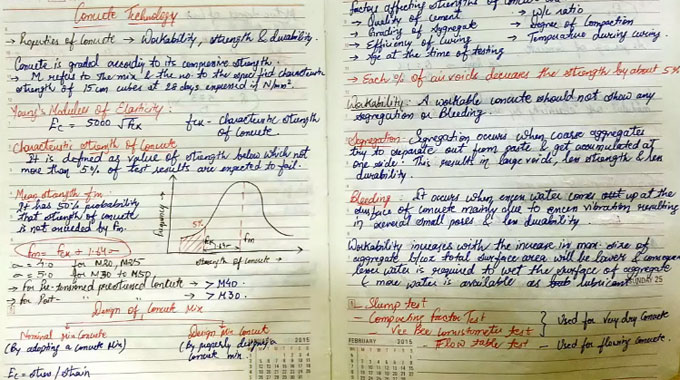 Concrete Technology
→ Properties of Concrete → Workability, strength & durability.
Concrete is graded according to its compressive strength.
→ M refers to the mix & the no. to the specified characteristic
strength of 15 cm cubes at 28 days expressed in N/mm².
Young's Modulus of Elasticity:
Ec = 5000 √fck fck - Characteristic strength
of concrete.
Characteristic strength of Concrete
It is defined as value of strength below which not
more than 5% of test results are expected to fail.
Mean strength fm
It has 50% probability
that strength of concrete
is not exceeded by fm.
fm = fck + 1.64σ
σ = 4.0 for M20, M25
σ = 5.0 for M30 to M50,
→ For Pre-tensioned prestressed concrete → > M40.
→ For Post- " " → > M30.
Frequency →
5%
fck
1.64σ
fm
strength of concrete →
Design of Concrete Mix
Nominal Mix Concrete
(By adopting a concrete mix)
Design Mix Concrete
(By properly designing
concrete mix
Ec = stress / strain
2015
factors affecting strength of
→ Quality of cement
→ w/c ratio
→ Grading of Aggregate
→ Degree of Compaction
→ Efficiency of Curing
→ Temperature during curing.
→ Age at the time of testing
→ Each % of air voids decreases the strength by about 5%
Workability: A workable concrete should not show any
segregation or Bleeding.
Segregation: Segregation occurs when coarse aggregates
try to separate out from paste & get accumulated at
one side. This results in large voids, less strength & less
durability.
Bleeding: It occurs when excess water comes up at the
surface of concrete mainly due to excess vibration resulting
in several small pores & less durability.
Workability increases with the increase in max. size of
aggregate b/coz total surface area will be lower &
lesser water is required to wet the surface of aggregate
& more water is available as lubricant.
SUNDAY 25
- Slump test
- Compacting factor Test
Vee Bee consistometer test } Used for very dry Concrete
- Flow table test - Used for flowing concrete.
FEBRUARY 2015